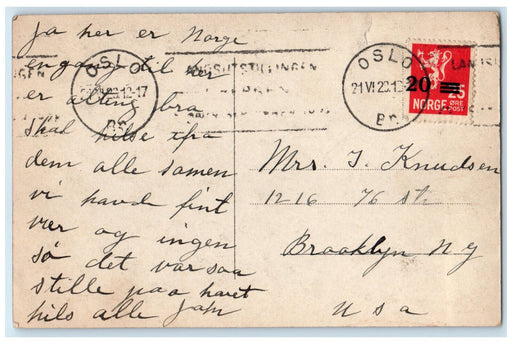 Ja her er Norge
engang til her
er alting bra
skal hilse ifra
dem alle samen
vi havde fint
vær og ingen
så det var saa
stille paa havet
hils alle
OSLO
BR.
LANDSUTSTILLINGEN
BERGEN
OSLO
21 VI 28.12
BR
20
NORGE
ØRE
POST
Mrs. J. Knudsen
1216 76 st.
Brooklyn N.Y
U S A